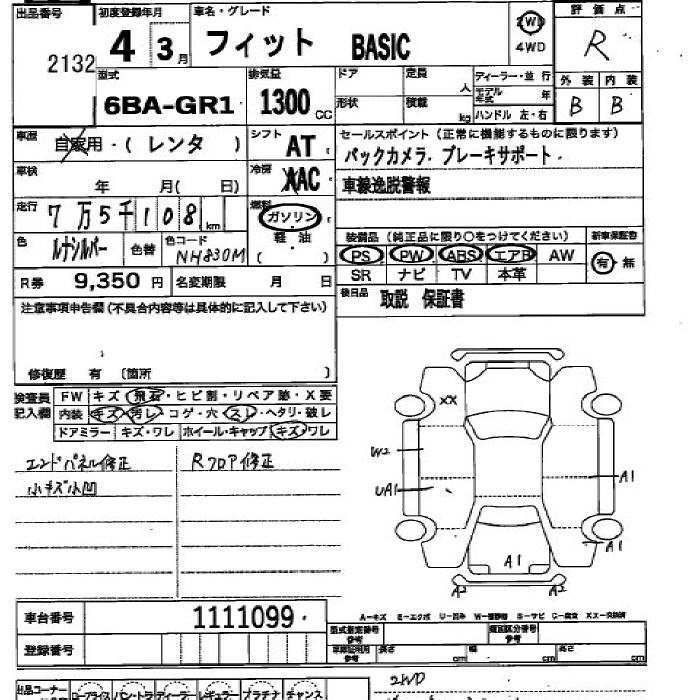 出品番号 初度登録年月 車名・グレード 評価点
2132 4 3月 フィット BASIC 2WD 4WD R
型式 排気量 ドア 定員 人 ディーラー・並行 外装 内装
6BA-GR1 1300 CC 形状 積載 kg モデル年式 年 ハンドル 左・右 B B
車歴 自家用・( レンタ ) シフト AT セールスポイント (正常に機能するものに限ります)
バックカメラ. ブレーキサポート.
車検 年 月( 日) 冷房 AAC 車線逸脱警報
走行 7万5千108 km 燃料 ガソリン 軽・油 ( )
装備品 (純正品に限り○をつけてください) 新車保証書
色 ルナシルバー 色替 色コード NH830M PS PW ABS エアB AW 有・無
SR ナビ TV 本革
R券 9,350円 名変期限 月 日 後日品 取説 保証書
注意事項申告欄 (不具合内容等は具体的に記入して下さい)
修復歴 有 (箇所 )
検査員記入欄 FW キズ・飛石・ヒビ割・リペア跡・X要
内装 キズ・汚レ・コゲ・穴・スレ・ヘタリ・破レ
ドアミラー キズ・ワレ ホイール・キャップ キズ・ワレ
エンドパネル修正 Rフロア修正
小キズ小凹
XX
W2
UA1 A1
A1 A1
A2 A2
車台番号 1111099.
A-キズ E-エクボ U-凹み S-サビ
登録番号 型式指定番号 参考 類別区分番号 参考
長さ cm 幅 cm 高さ cm
出品コーナー ディーラー プラチナ チャンス
2WD